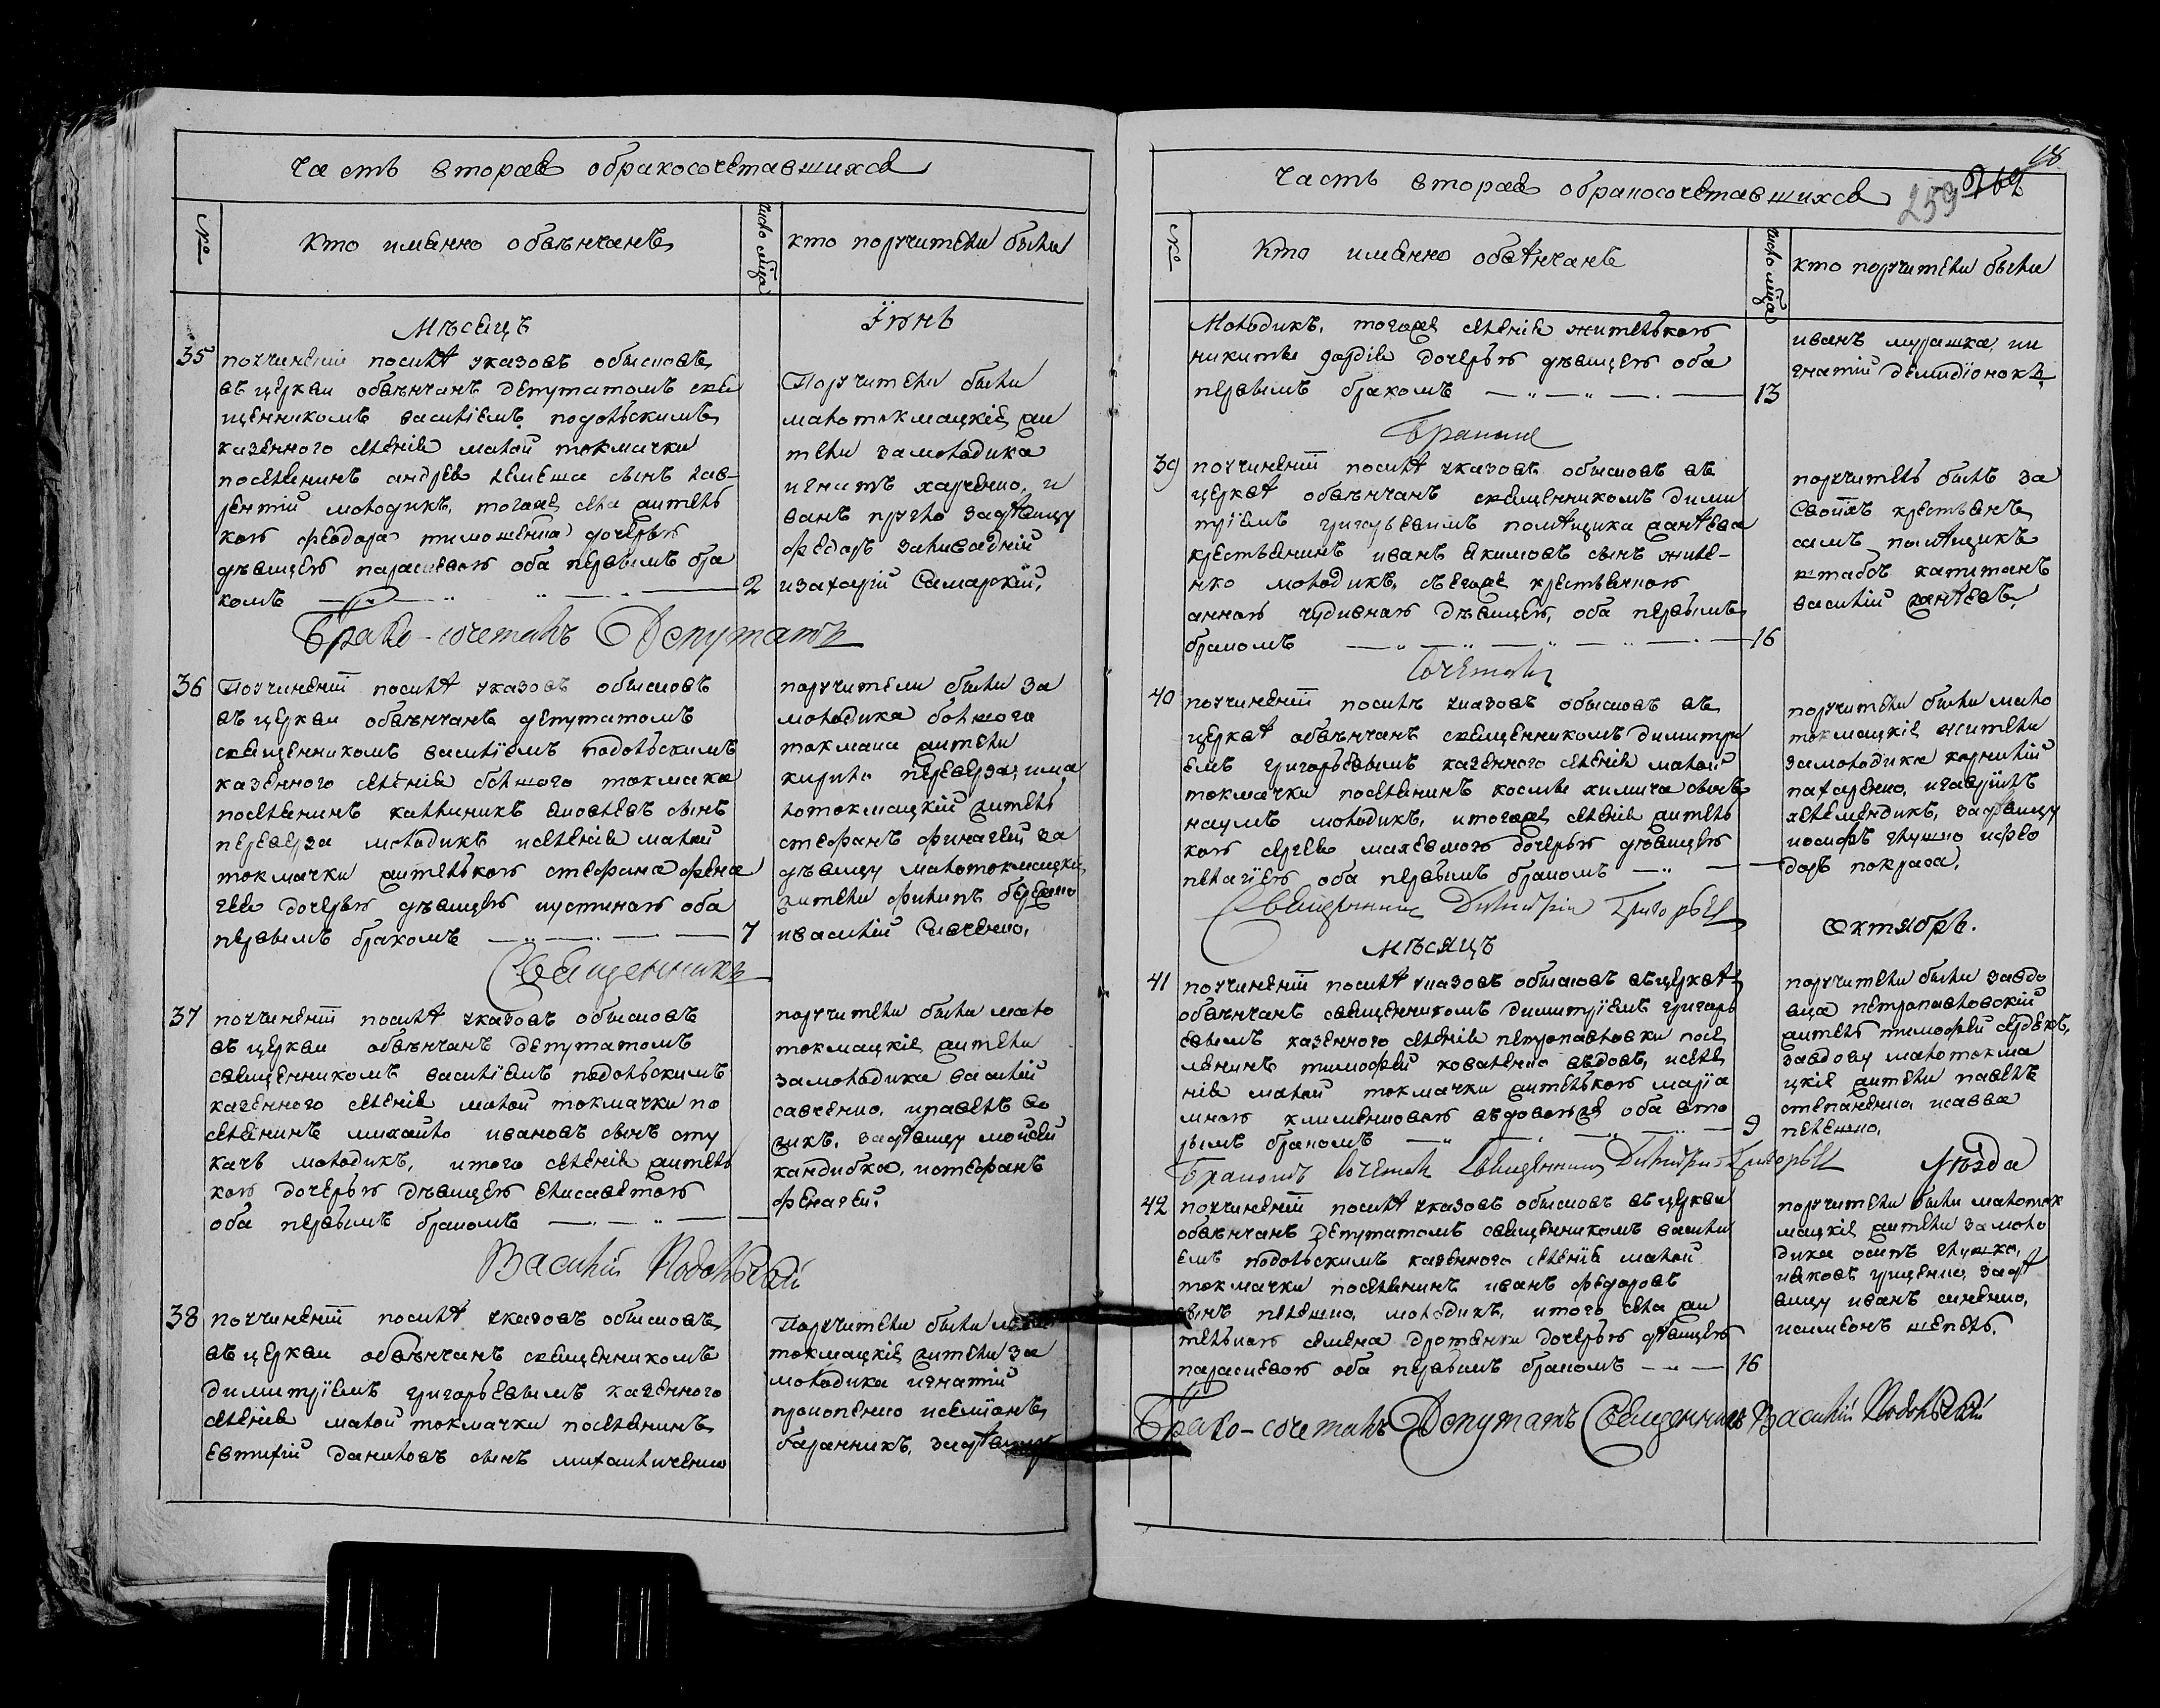 часть вторая о бракосочетавшихся
№
кто именно обвѣнчанъ
число мѣсца
кто поручители были
Мѣсяцъ
Їюнь
35
по учиненіи послѣ указовъ обысковъ
въ церкви обвѣнчанъ депутатомъ свя
щенникомъ василіемъ подольскимъ
казенного селенія малой токмачки
поселенинъ андрея лемеша сынъ лав-
рентій молодикъ, тогоже села житель
кою феодора тимошенка дочерью
дѣвицею параскевою оба первымъ бра
комъ
2
Поручители были
малотокмацкіе жи
тели за молодика
игнатъ харченко, и
ванъ пругло за дѣвицу
федоръ заливадній
и захарій Самарскій,
Брако-сочеталъ Депутатъ
36
По учиненіи послѣ указовъ обысковъ
въ церкви обвѣнчанъ депутатомъ
священникомъ василіемъ подольскимъ
казенного селенія большого токмака
поселенинъ каллиникъ яковлевъ сынъ
перевер за молодикъ и селенія малой
токмачки жителькою стефана фена
гея дочерью дѣвицею иустиною оба
первымъ бракомъ
7
поручители были за
молодика большого
токмака жители
кирило переверза, и ма
лотокмацкій житель
стефанъ финагей за
дѣвицу малотокмацкіе
жители филипъ
и василій Савченко,
Священникъ
37
по учиненіи послѣ указовъ обысковъ
въ церкви обвѣнчанъ депутатомъ
священникомъ василіемъ подольскимъ
казенного селенія малой токмачки по
селенинъ михайло ивановъ сынъ сту
качъ молодикъ, и того селенія житель
кою дочерью дѣвицею елисаветою
оба первымъ бракомъ
поручители были мало
токмацкіе жители
за молодика василій
савченко, и павелъ во
викъ, за дѣвицу мойсей
кандибка, и стефанъ
фенагей.
Василій Подольскій
38
по учиненіи послѣ указовъ обысковъ
въ церкви обвѣнчанъ священникомъ
димитріемъ григорьевымъ казенного
селенія малой токмачки поселенинъ
евтифій даниловъ сынъ михайличенко
Поручители были
токмацкіе жители за
молодика игнатій
прокопенко и семіонъ
баранникъ, за дѣвицу
18
259
часть вторая о бракосочетавшихся
№
Кто именно обвѣнчанъ
число мѣсца
кто поручители были
Молодикъ, тогоже селенія жителькою
никиты гордія дочерью дѣвицею оба
первымъ бракомъ
13
иванъ мурашка, и и
гнатій демидіонокъ,
Бракомъ
39
по учиненіи послѣ указовъ обысковъ въ
церквѣ обвѣнчанъ священникомъ дими
тріемъ григорьевимъ помѣщика
крестьянинъ иванъ якимовъ сынъ жиле-
нко молодикъ, съ егоже крестьянкою
анною чудивною дѣвицею, оба первымъ
бракомъ
16
поручитель былъ за
Своихъ крестьянъ
самъ помѣщикъ
штабсъ капитанъ
василій
Сочеталъ
40
по учиненіи послѣ указовъ обысковъ въ
церквѣ обвѣнчанъ священникомъ димитрі
емъ григорьевымъ казенного селенія малой
токмачки поселенинъ космы химича сынъ
наумъ молодикъ, и тогоже селенія житель
кою сергея махевкого дочерью дѣвицею
пелагіею оба первымъ бракомъ
поручители были мало
токмацкіе жители
за молодика корнилій
пахаренко, и гавріилъ
желемендикъ, за дѣвицу
иосифъ глушко и фео
доръ покраса,
Священникъ Димитрій Григорьевъ
мѣсяцъ
Октябрь.
41
по учиненіи послѣ указовъ обысковъ въ церквѣ
обвѣнчанъ священникомъ димитріемъ григорь
евымъ казенного селенія петропавловки посе
ленинъ тимофей коваленко вдовъ, и селе
нія малой токмачки жителькою маріа
мною клименковою вѣдовою же оба вто
рымъ бракомъ
9
поручители были за вдо
вца петропавловскій
житель тимофей сердекъ,
за вдову малотокма
цкіе жители павелъ
степаненко, и савва
пелешко,
Бракомъ Сочеталъ Священникъ Димитрій Григорьевъ
42
по учиненіи послѣ указовъ обысковъ въ церкви
обвѣнчанъ Депутатомъ священникомъ васили
емъ подольскимъ казенного селенія малой
токмачки поселенинъ иванъ федоровъ
сынъ пелешко, молодикъ, и того села жи
телькою семена дротенки дочерью дѣвицею
параскевою оба первымъ бракомъ
16
поручители были малоток
мацкіе жители за моло
дика осипъ глушко,
иаковъ гриценко, за дѣ
вицу иванъ синенко,
и симеонъ шепель.
Брако-сочеталъ Депутатъ Священникъ Василій Подольскій